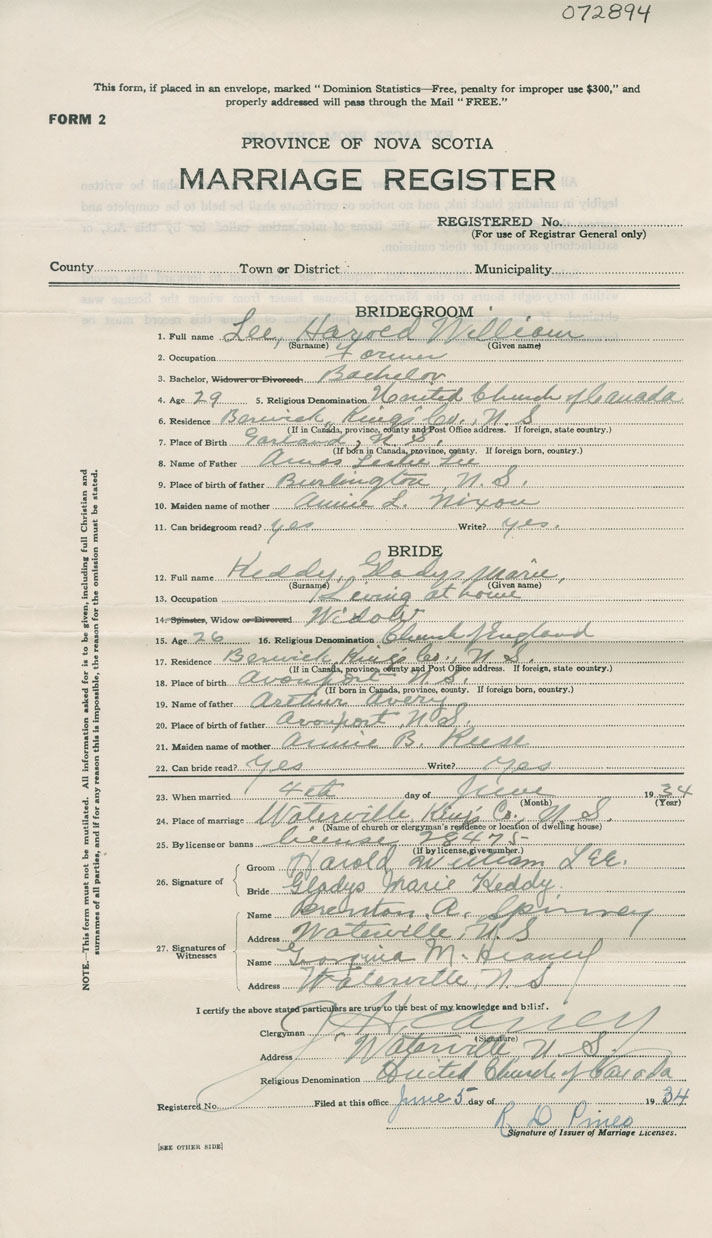 072894
This form, if placed in an envelope, marked "Dominion Statistics—Free, penalty for improper use $300," and
properly addressed will pass through the Mail "FREE."
FORM 2
PROVINCE OF NOVA SCOTIA
MARRIAGE REGISTER
REGISTERED No.
(For use of Registrar General only)
County Town or District Municipality
BRIDEGROOM
1. Full name Lee, Harold William
(Surname) (Given name)
2. Occupation Farmer
3. Bachelor, Widower or Divorced Bachelor
4. Age 29 5. Religious Denomination United Church of Canada
6. Residence Berwick, King's Co., N.S
(If in Canada, province, county and Post Office address. If foreign, state country.)
7. Place of Birth Garland, N.S.
(If born in Canada, province, county. If foreign born, country.)
8. Name of Father Amos Leslie Lee
9. Place of birth of father Burlington N.S.
10. Maiden name of mother Annie L. Nixon
11. Can bridegroom read? yes Write? yes.
BRIDE
12. Full name Keddy, Gladys Marie,
(Surname) (Given name)
13. Occupation Living at home
14. Spinster, Widow or Divorced Widow
15. Age 26 16. Religious Denomination Church of England
17. Residence Berwick, King's Co., N.S.
(If in Canada, province, county and Post Office address. If foreign, state country.)
18. Place of birth Avonport N.S.
(If born in Canada, province, county. If foreign born, country.)
19. Name of father Arthur Avery
20. Place of birth of father Avonport, N.S.
21. Maiden name of mother Annie B. Reese
22. Can bride read? Yes Write? Yes
23. When married 4th day of June 1934
(Month) (Year)
24. Place of marriage Waterville, King's Co., N.S.
(Name of church or clergyman's residence or location of dwelling house)
25. By license or banns license 28475
(If by license, give number.)
26. Signature of Groom Harold William LEE.
Bride Gladys Marie Keddy.
27. Signatures of Witnesses Name Brenton A. Spinney
Address Waterville, N.S
Name Georgina M. Heaney
Address Waterville, N.S
I certify the above stated particulars are true to the best of my knowledge and belief.
Clergyman J. Heaney
(Signature)
Address Waterville N.S.
Religious Denomination United Church of Canada
Registered No. Filed at this office June 5 day of 1934
R D Pineo
Signature of Issuer of Marriage Licenses.
[SEE OTHER SIDE]
NOTE.—This form must not be mutilated. All information asked for is to be given, including full Christian and
surnames of all parties, and if for any reason this is impossible, the reason for the omission must be stated.